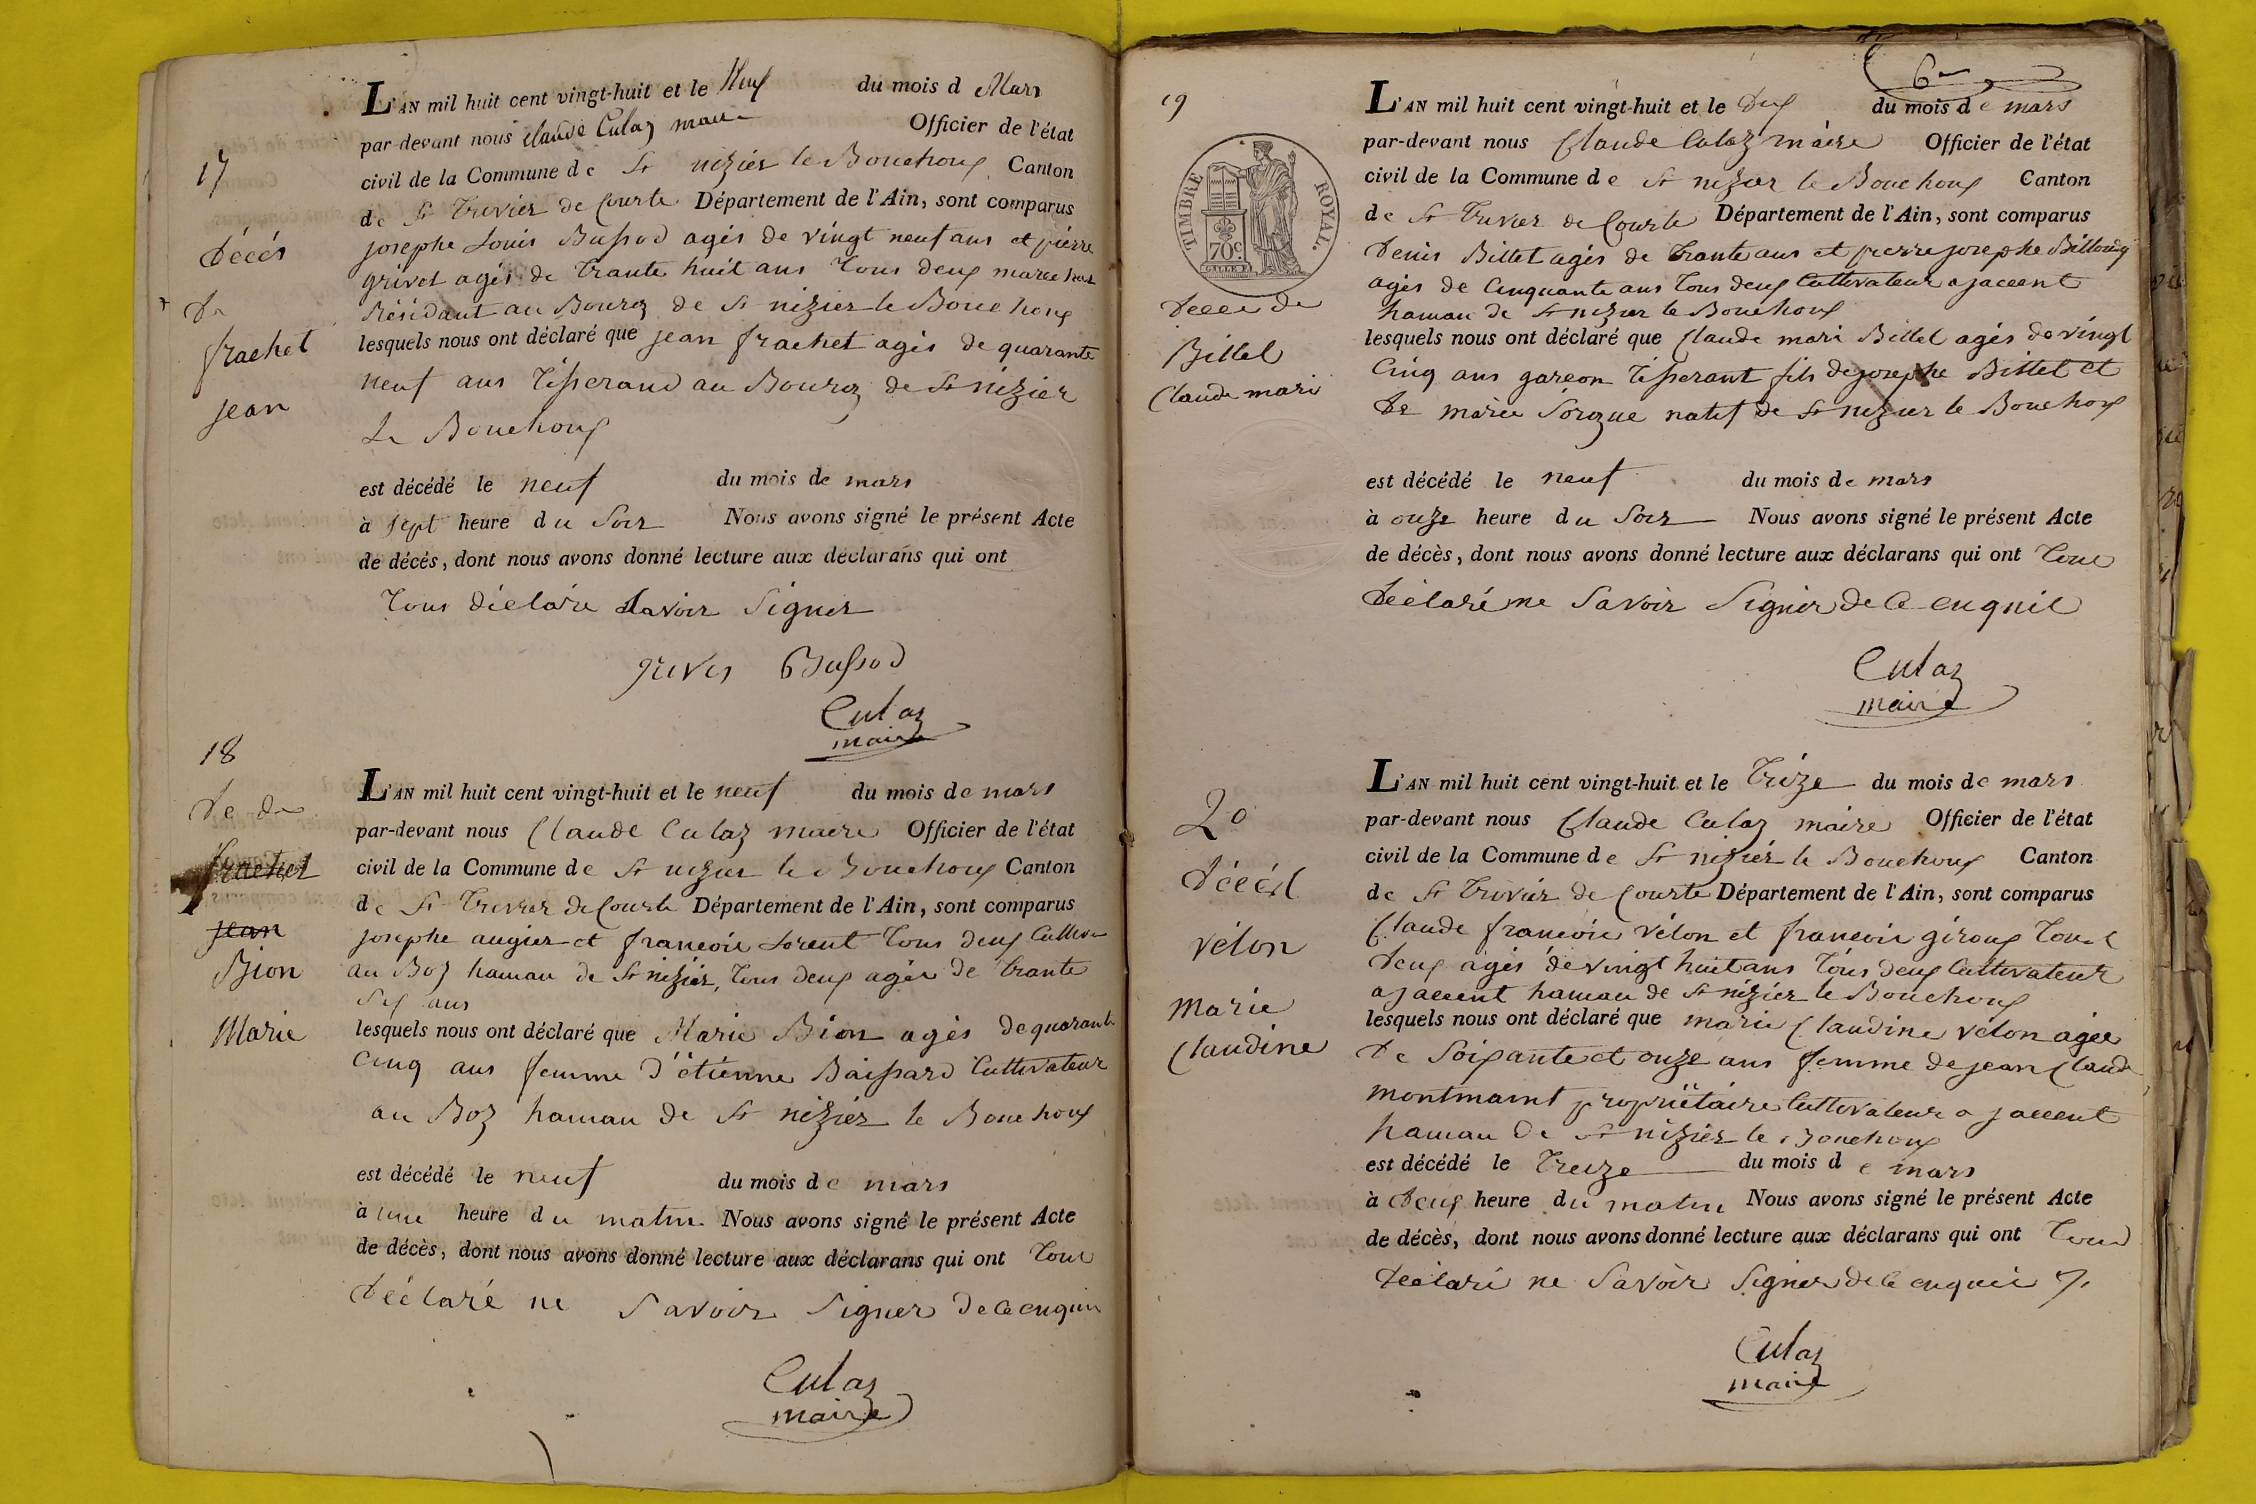 17
Décés
De
frachet
jean
L'AN mil huit cent vingt-huit et le Neuf du mois d Mars
par-devant nous claude Culaz maire Officier de l'état
civil de la Commune de St nizier le Bouchoux Canton
de St Trivier de Courte Département de l'Ain, sont comparus
josephe Louis Bussod agés de vingt neuf ans et pierre
grivet agés de trante huit ans Tous deux
Résidant au Bourg de St nizier le Bouchoux
lesquels nous ont déclaré que jean frachet agés de quarante
neuf ans Tisserand au Bourg de St nizier
Le Bouchoux
est décédé le neuf du mois de mars
à sept heure du Soir Nous avons signé le présent Acte
de décés, dont nous avons donné lecture aux déclarans qui ont
Tous déclaré Savoir Signer
grives Bussod
Culaz
maire
18
De de
frachet
jean
Bion
Marie
L'AN mil huit cent vingt-huit et le neuf du mois de mars
par-devant nous Claude Culaz maire Officier de l'état
civil de la Commune de St nizier le Bouchoux Canton
de St Trivier de Courte Département de l'Ain, sont comparus
josephe augier et francois Lorent Tous deux
au Boz hamau de St nizier, Tous deux agés de trante
Six ans
lesquels nous ont déclaré que Marie Bion agés de quarante
Cinq ans femme d'étienne Baissard Cultivateur
au Boz hamau de St nizier le Bouchoux
est décédé le neuf du mois de mars
à une heure du matin Nous avons signé le présent Acte
de décès, dont nous avons donné lecture aux déclarans qui ont Tous
Déclaré ne Savoir Signer de ce enquis
Culaz
maire
6me
19
TIMBRE ROYAL.
70c
Decee de
Billet
Claude mari
L'AN mil huit cent vingt-huit et le dix du mois de mars
par-devant nous Claude Culaz maire Officier de l'état
civil de la Commune de St nizier le Bouchoux Canton
de St Trivier de Courte Département de l'Ain, sont comparus
Denis Billet agés de trante ans et pierre josephe
agés de Cinquante ans Tous deux Cultivateur ajaccent
hamau de St nizier le Bouchoux
lesquels nous ont déclaré que Claude mari Billet agés de vingt
Cinq ans garcon Tisserant fils de josephe Billet et
De marie Sorgue natif de St nizier le Bouchoux
est décédé le neuf du mois de mars
à onze heure du Soir Nous avons signé le présent Acte
de décès, dont nous avons donné lecture aux déclarans qui ont Tous
Déclaré ne Savoir Signer de ce enquit
Culaz
maire
20
Décést
vélon
Marie
Claudine
L'AN mil huit cent vingt-huit et le Trize du mois de mars
par-devant nous Claude Culaz maire Officier de l'état
civil de la Commune de St nizier le Bouchoux Canton
de St Trivier de Courte Département de l'Ain, sont comparus
Claude francois vélon et francois giroux Tous
Deux agés de vingt huit ans Tous deux Cultivateur
ajaccent hamau de St nizier le Bouchoux
lesquels nous ont déclaré que marie Claudine vélon agée
De Soixante et onze ans femme de jean Claude
montmaint propriétaire Cultivateur ajaccent
hamau de St nizier le Bouchoux
est décédé le Treize du mois de mars
à Deux heure du matin Nous avons signé le présent Acte
de décès, dont nous avons donné lecture aux déclarans qui ont Tous
Déclaré ne Savoir Signer de ce enquis
Culaz
maire